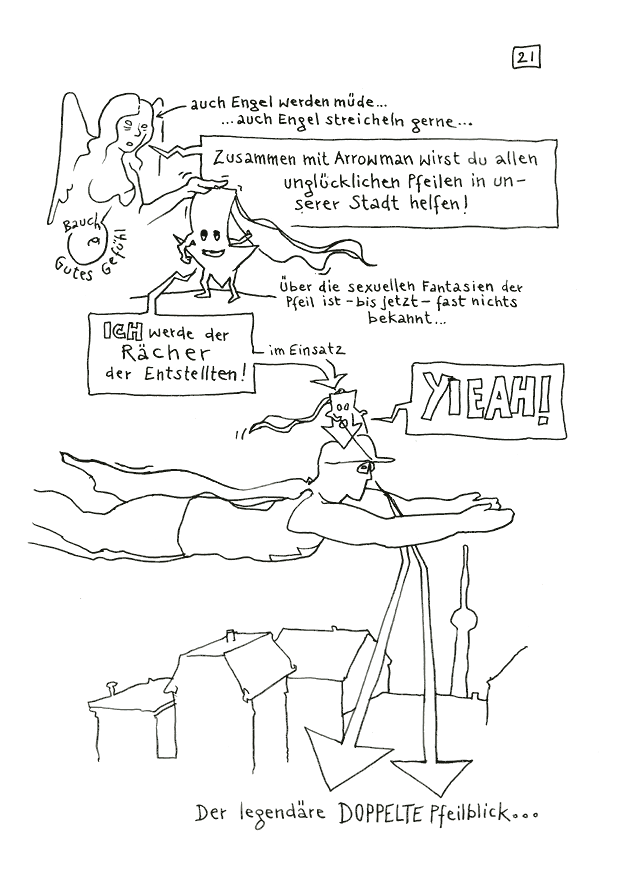 21
auch Engel werden müde...
...auch Engel streicheln gerne...
Zusammen mit Arrowman wirst du allen
unglücklichen Pfeilen in un-
serer Stadt helfen!
Bauch
Gutes Gefühl
Über die sexuellen Fantasien der
Pfeil ist - bis jetzt - fast nichts
bekannt...
ICH werde der
Rächer
der Entstellten!
im Einsatz
YIEAH!
Der legendäre DOPPELTE Pfeilblick...